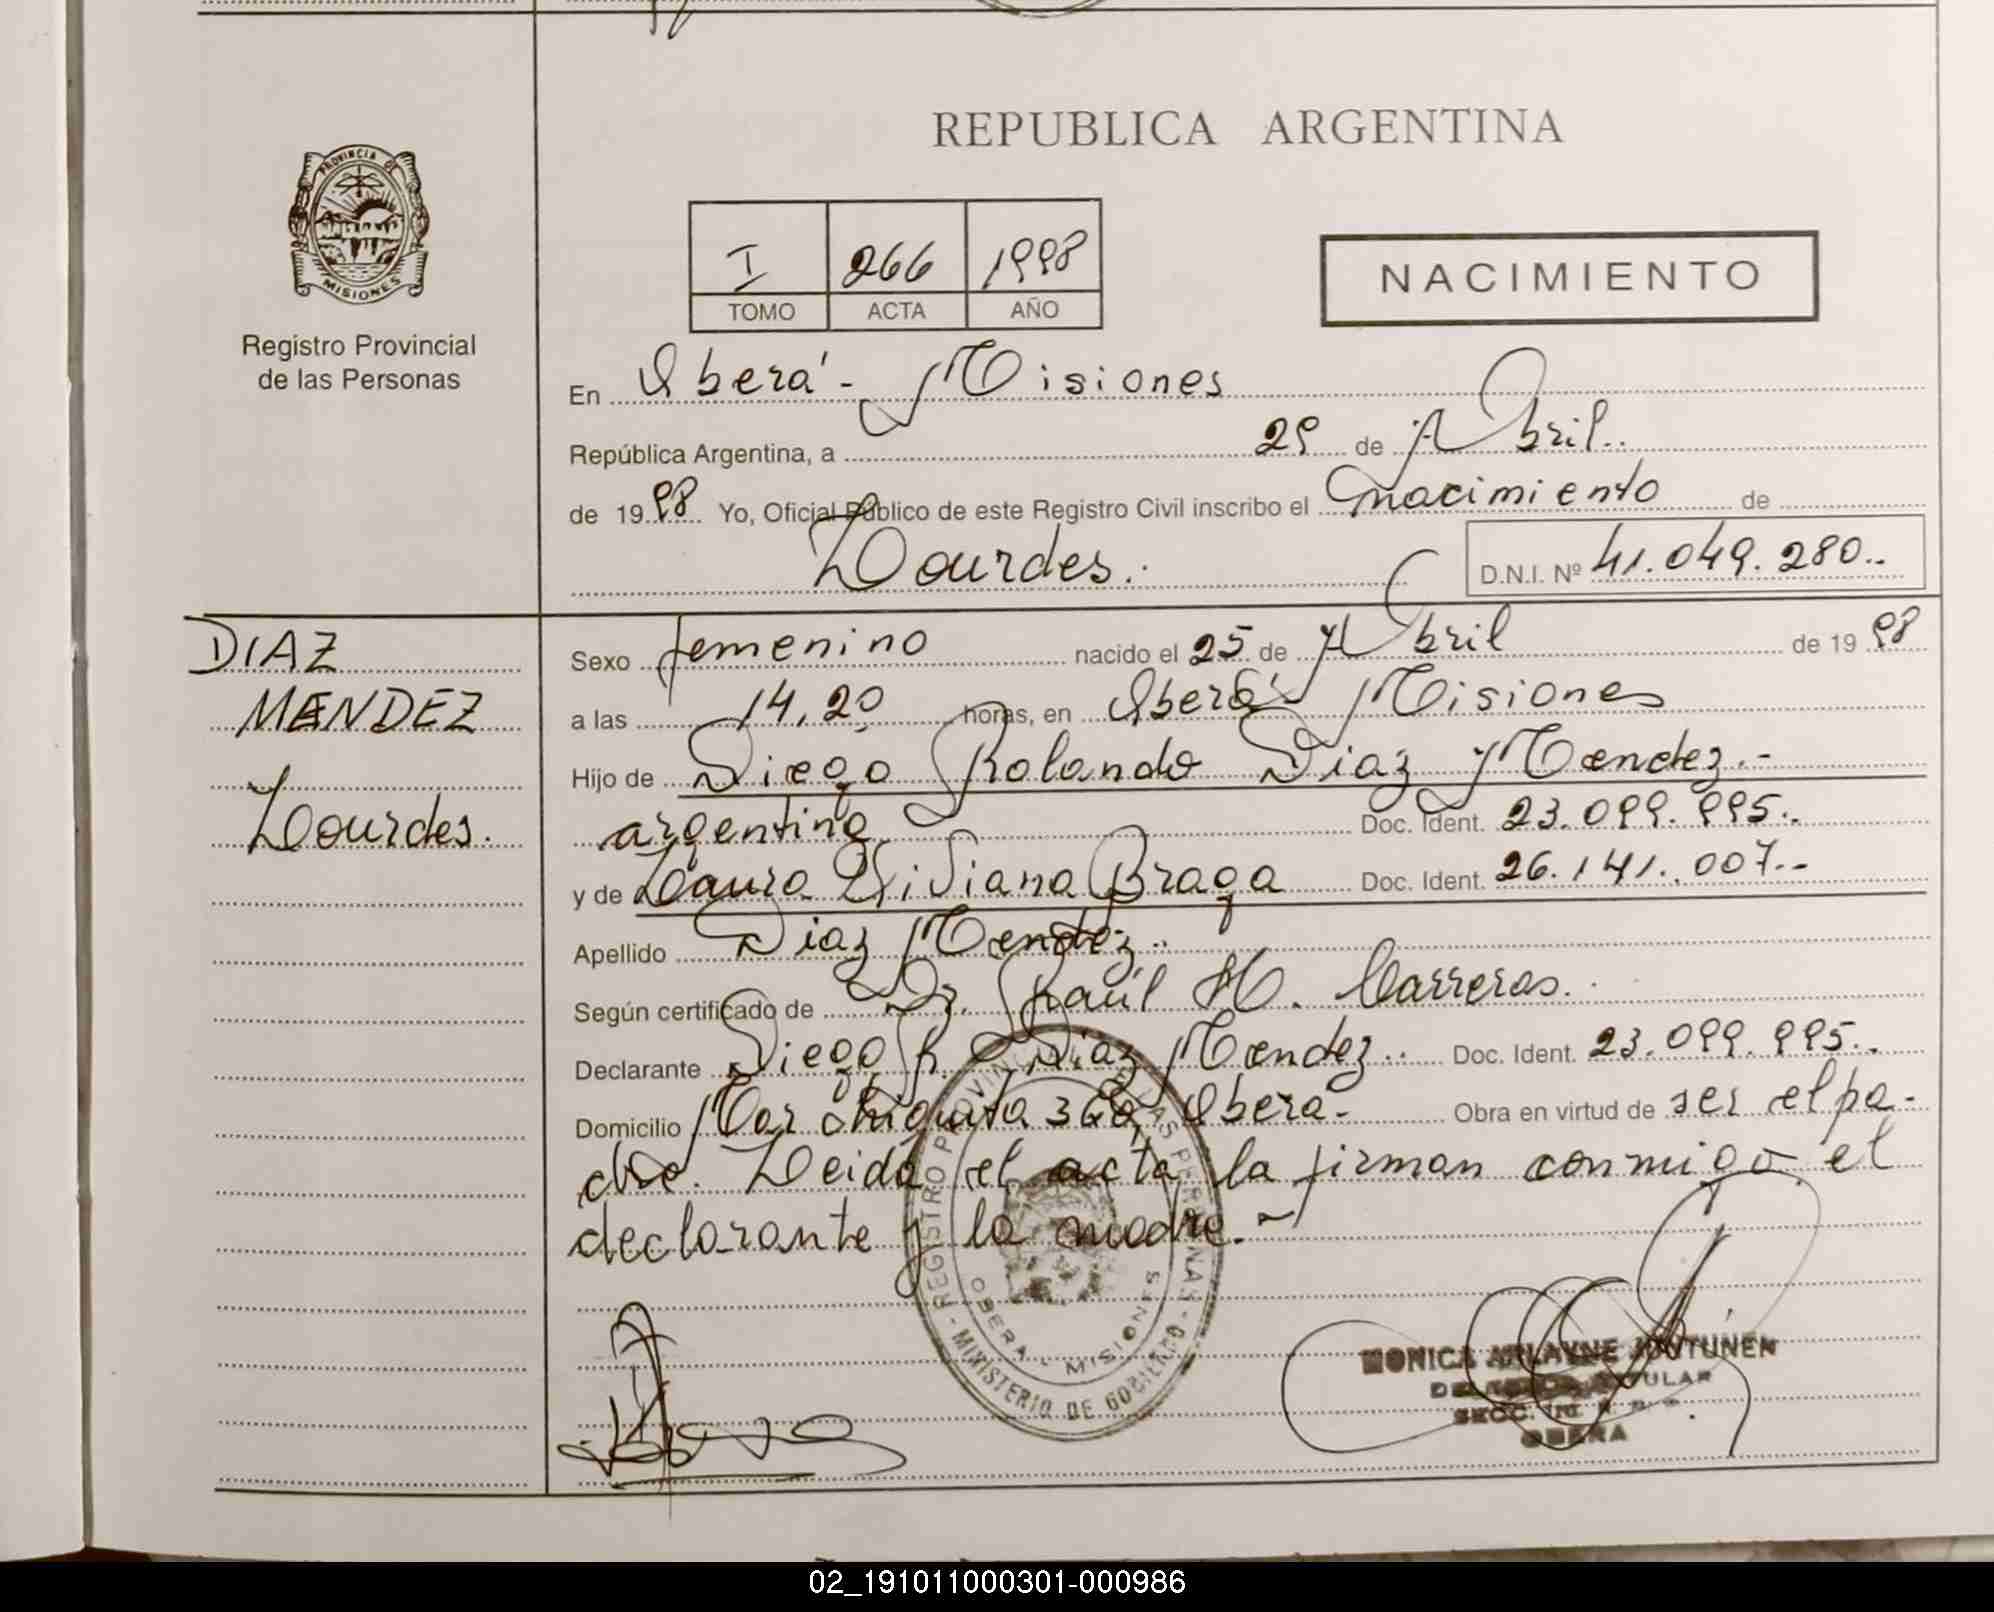 REPUBLICA ARGENTINA
PROVINCIA DE
MISIONES
Registro Provincial
de las Personas
I 266 1998
TOMO ACTA AÑO
NACIMIENTO
En Oberá - Misiones
República Argentina, a 29 de Abril..
de 1998 Yo, Oficial Público de este Registro Civil inscribo el nacimiento de
Lourdes. D.N.I. Nº 41.049.280..
DIAZ
MENDEZ
Lourdes.
Sexo femenino nacido el 25 de Abril de 1998
a las 14,20 horas, en Oberá Misiones
Hijo de Diego Rolando Diaz Mendez.-
argentina Doc. Ident. 23.099.995..
y de Laura Viviana Braga Doc. Ident. 26.141.007.-
Apellido Diaz Mendez..
Según certificado de Dr. Raúl H. Carreras.
Declarante Diego R. Diaz Mendez.. Doc. Ident. 23.099.995..
Domicilio Mar Chiquita 360, Oberá- Obra en virtud de ser el pa-
dre. Leida el acta la firman conmigo el
declarante y la madre.-
REGISTRO PROVINCIAL DE LAS PERSONAS - MINISTERIO DE GOBIERNO
OBERA - MISIONES
MONICA ARLAYNE JOUTUNEN
TITULAR
SECC.
OBERA
02_191011000301-000986